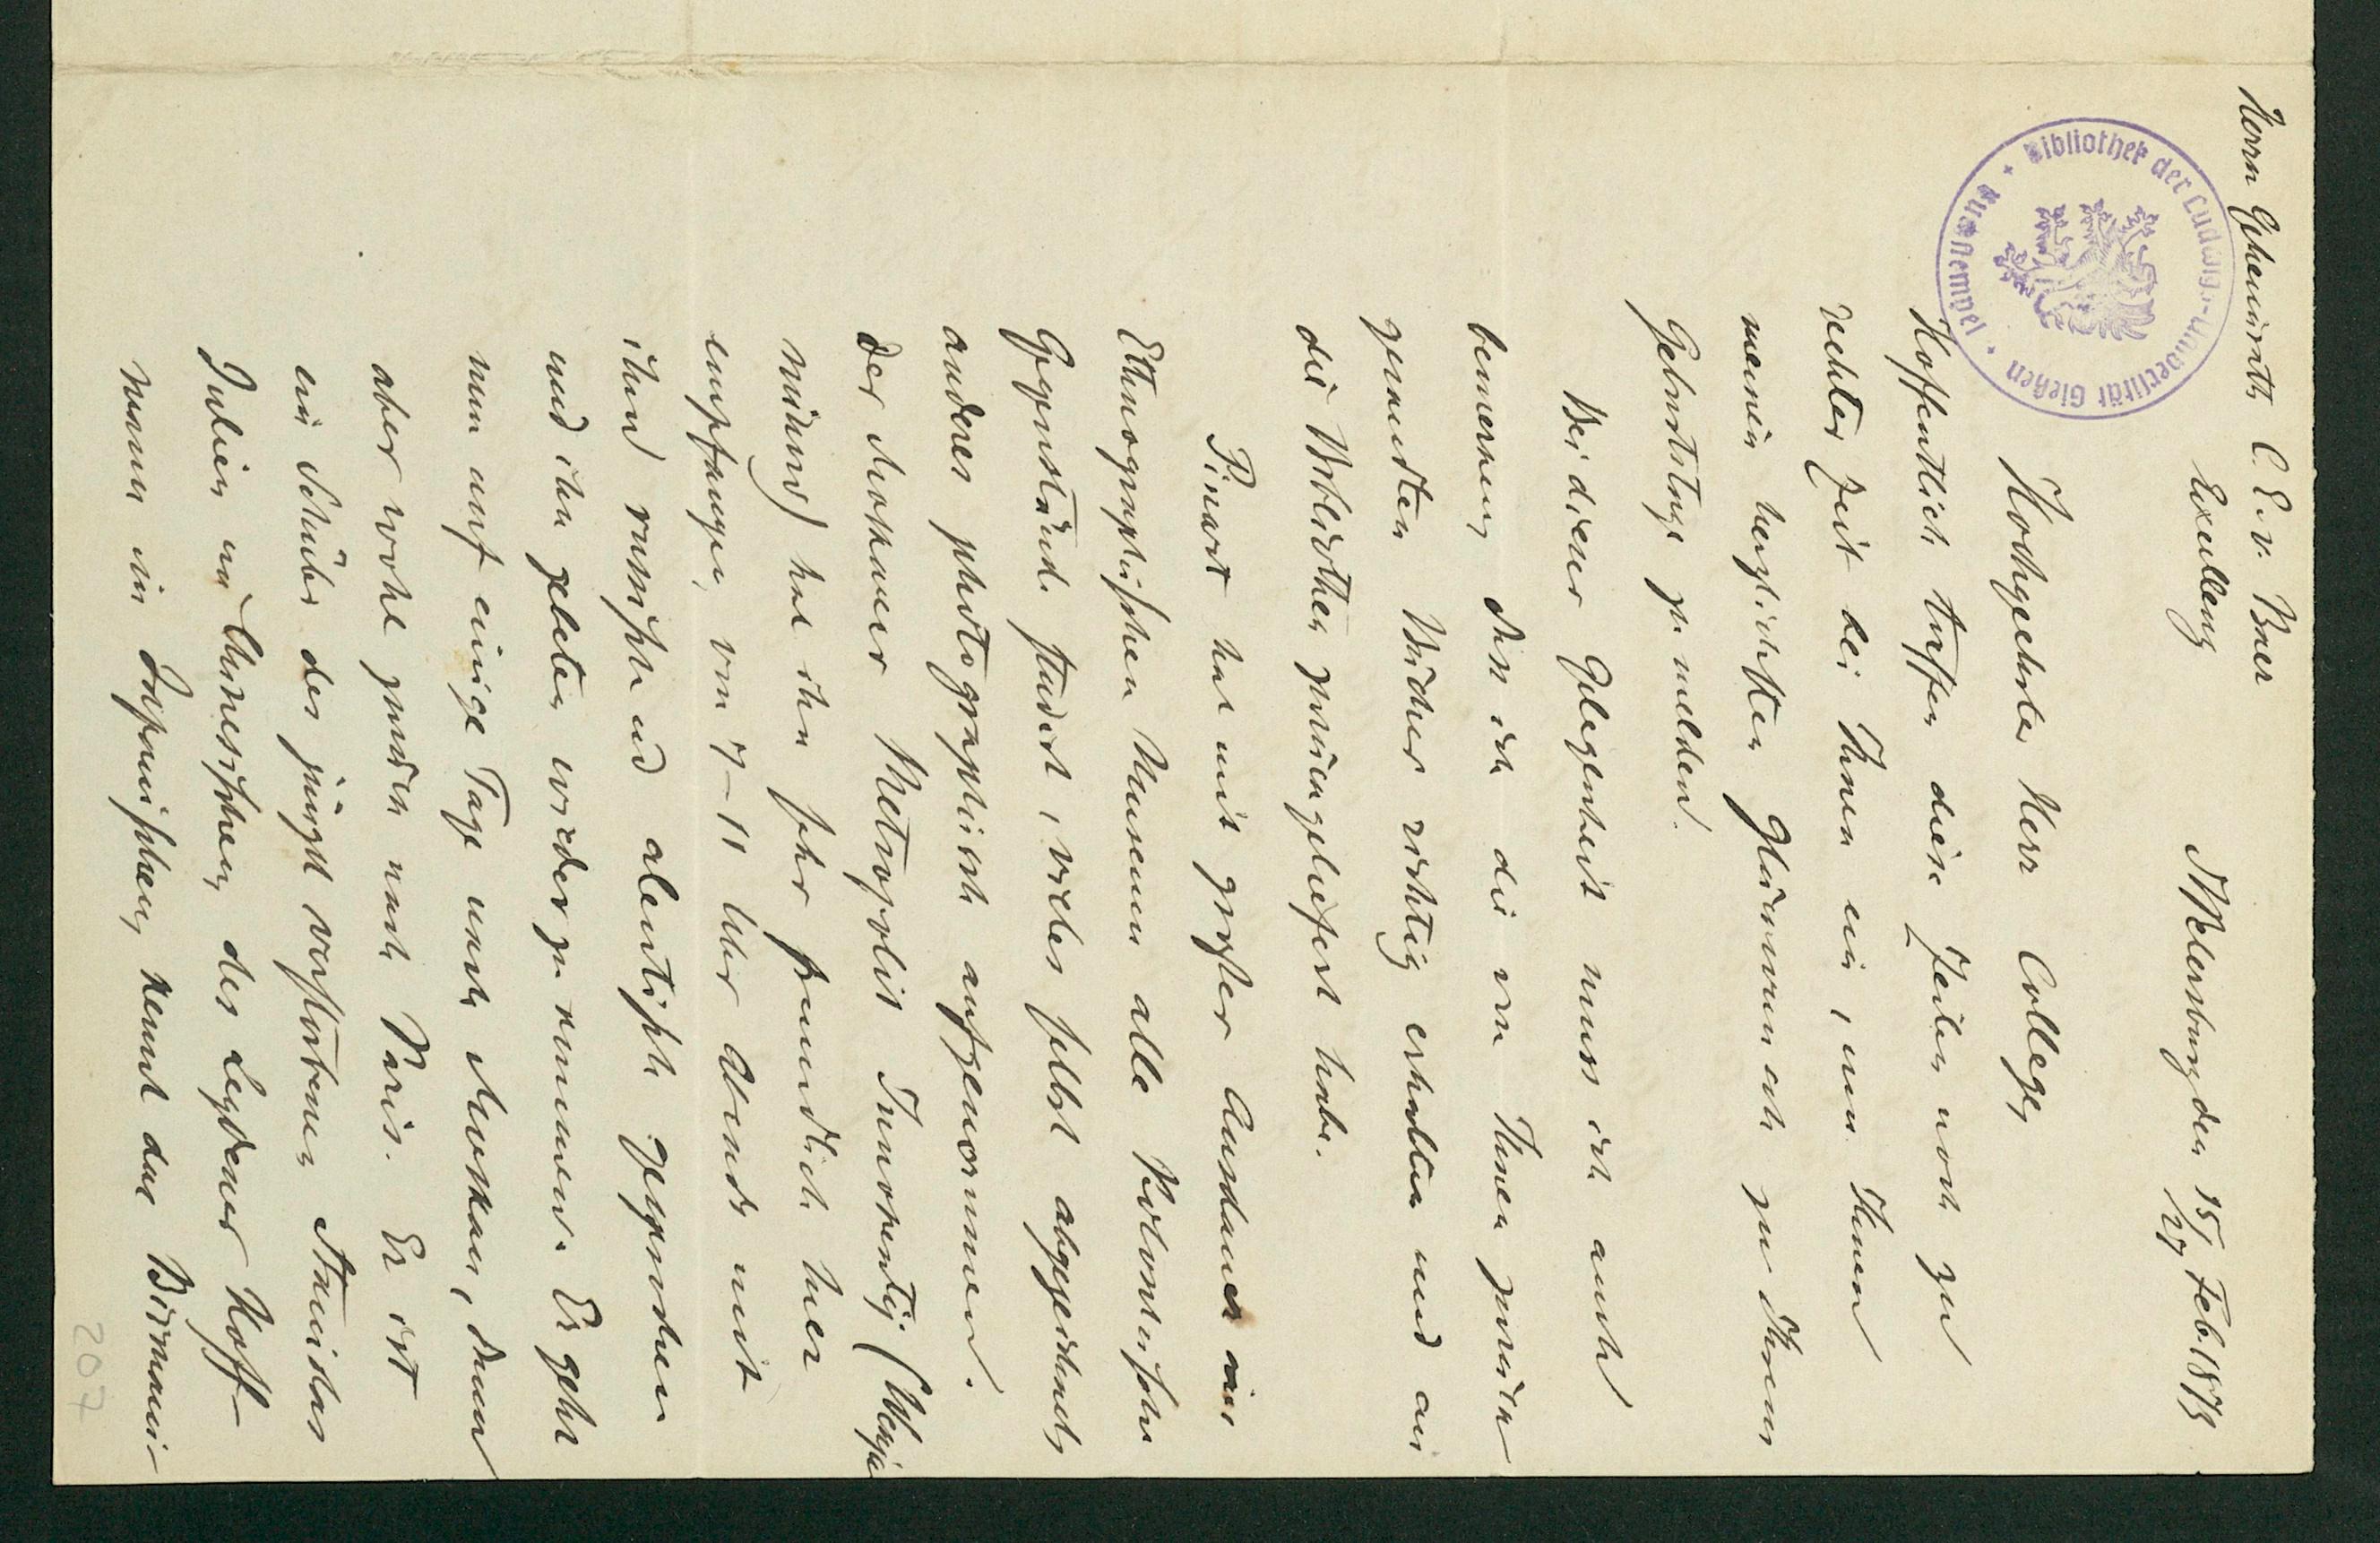 Herrn Geheimrath C. E. v. Baer
Excellenz
St Petersburg den 15/27 Feb 1873
Bibliothek der Ludwigs-Universität Gießen
Hochgeehrter Herr College,
Hoffentlich treffen diese Zeilen noch zu
rechter Zeit bei Ihnen ein, um Ihnen
meinen herzlichsten Glückwunsch zu Ihrem
Geburtstage zu melden.
Bei dieser Gelegenheit muss ich auch
bemerken, dass ich die von Ihnen zurück
gesandten Bücher richtig erhalten und an
die Bibliothek zurückgeliefert habe.
Pinart hat mit grosser Ausdauer im
Ethnographischen Museum alle Koloschische
Gegenstände studirt, vieles selbst abgezeichnet,
anderes photographisch aufgenommen.
Der Moskauer Metropolit Innokentij (Wenja
minow) hat ihn sehr freundlich hier
empfangen, von 7–11 Uhr Abends mit
ihm russisch und aleutisch gesprochen
und ihn gebeten wieder zu kommen. Er geht
nun auf einige Tage nach Moskau, dann
aber wohl zurück nach Paris. Er ist
ein Schüler des jüngst verstorbenen Stanislas
Julien im Chinesischen, des Leydener Hoff-
mann im Japanischen, kennt das Birmani-
207